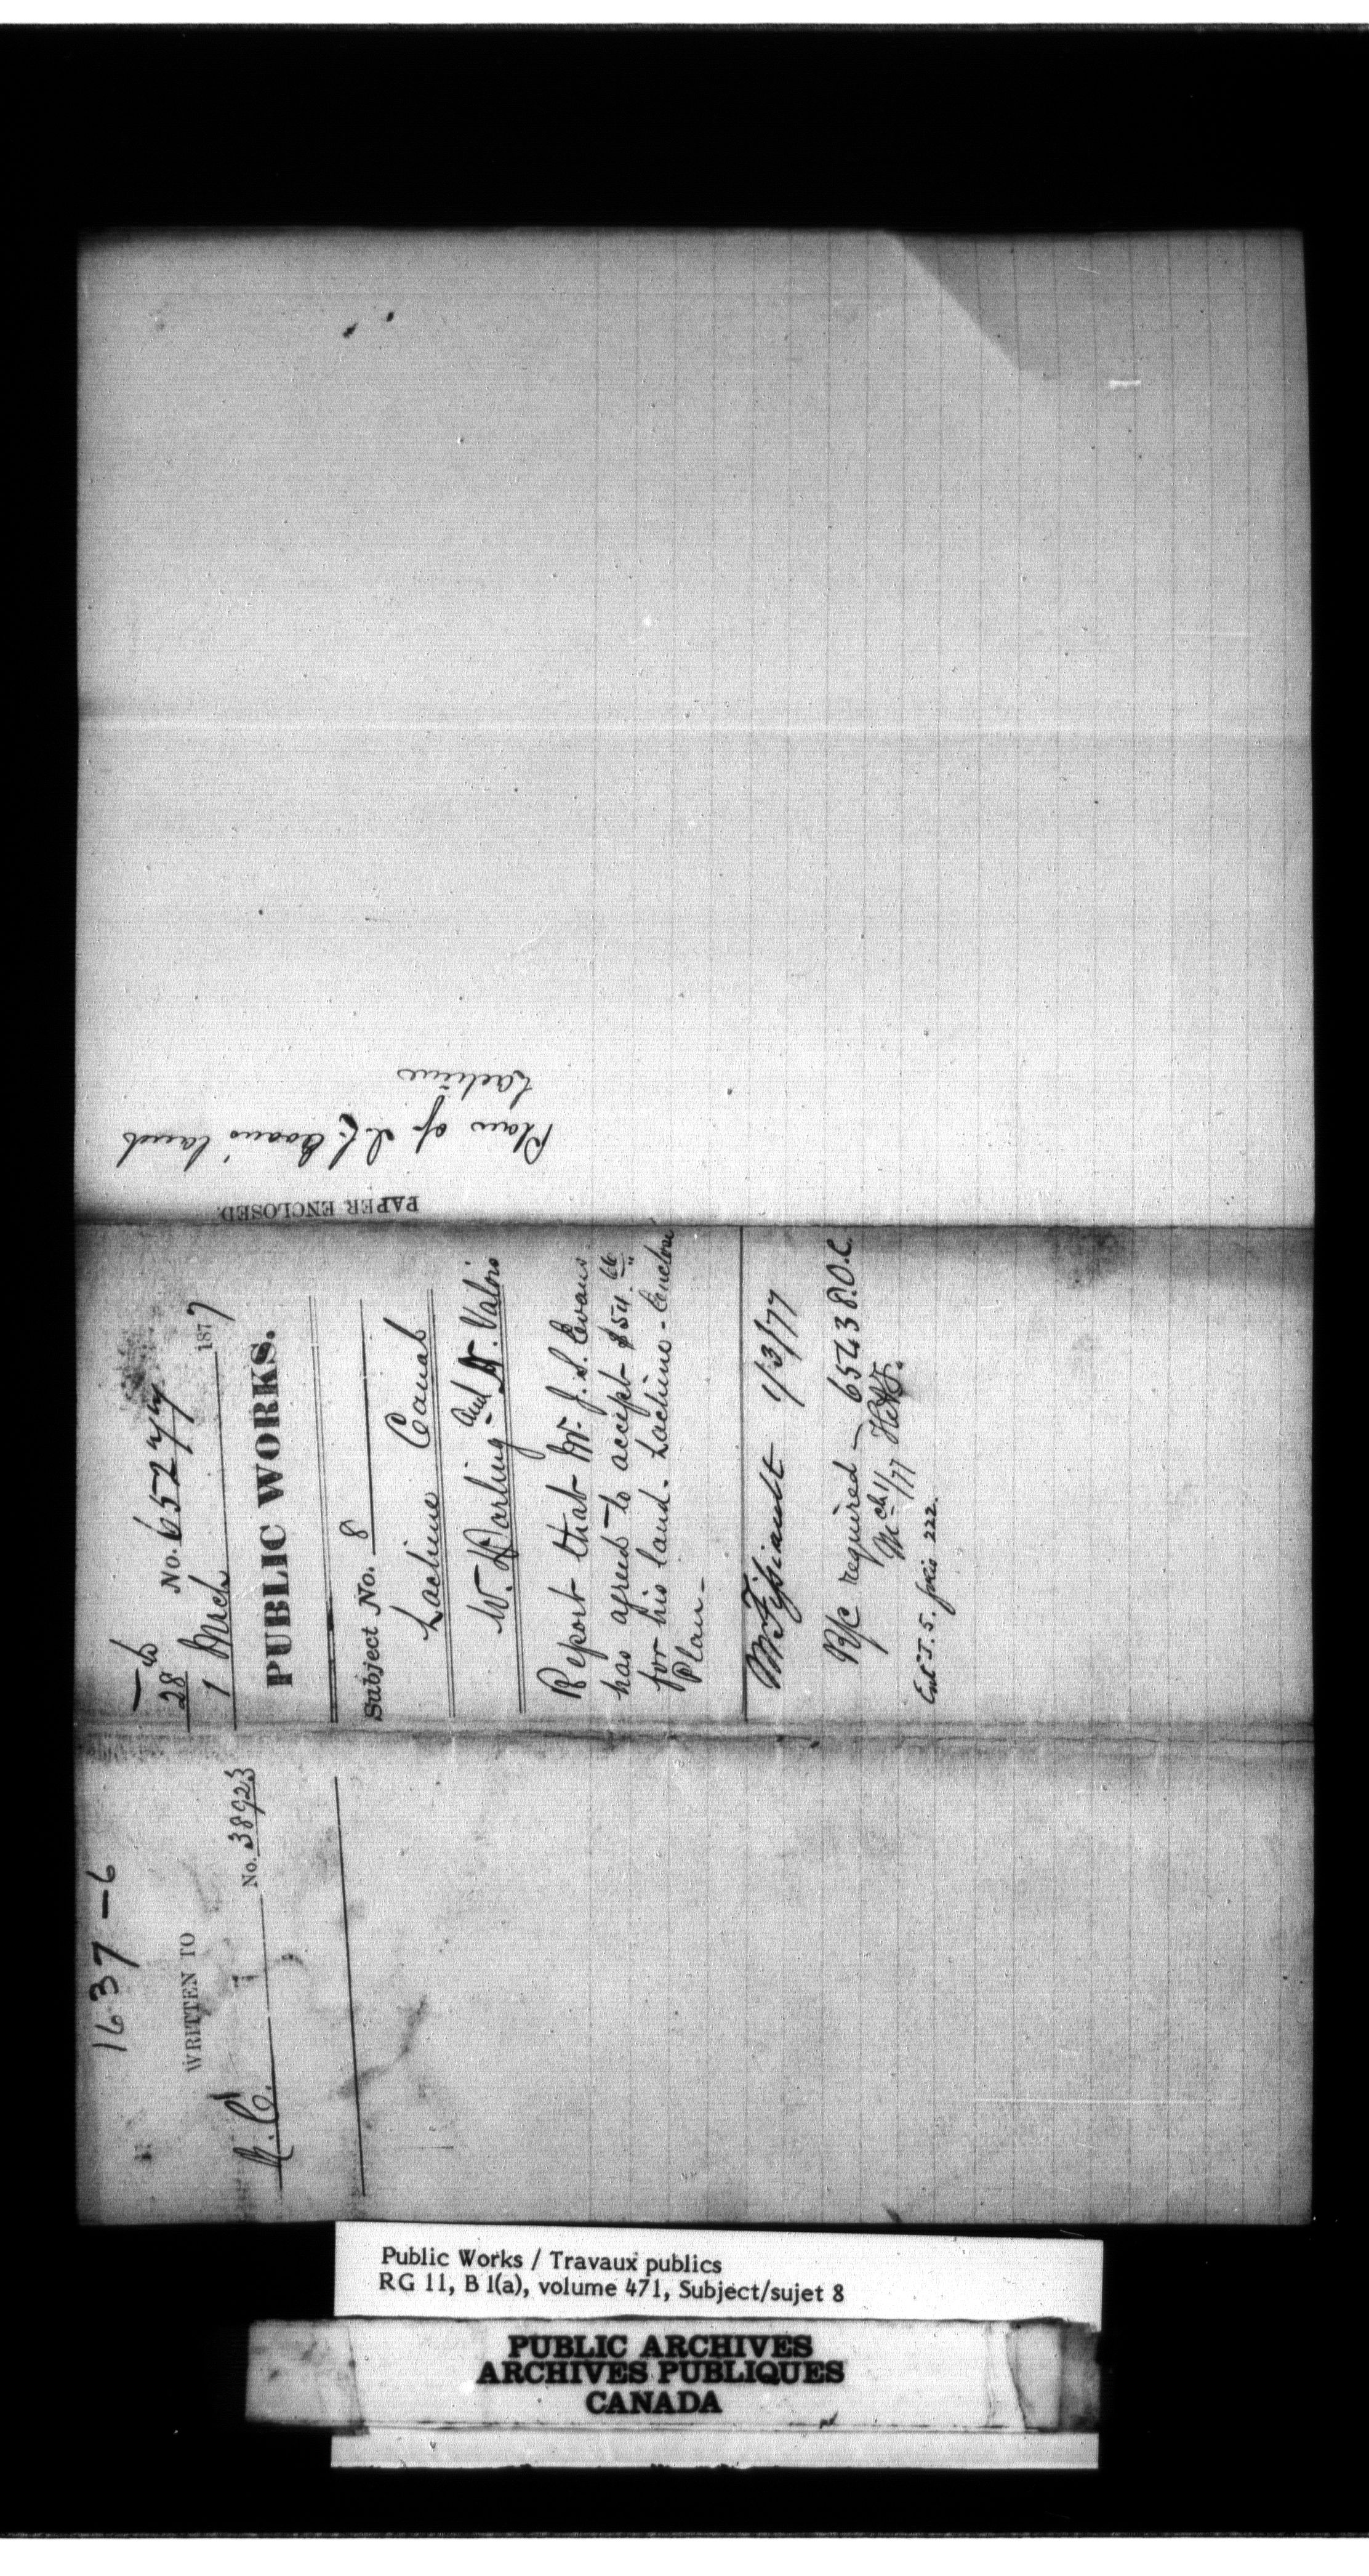 1637 - 6
WRITTEN TO
No. 38923
28
No. 65277
1 Mrch 1877
PUBLIC WORKS.
Subject No. 8
Lachine Canal
W. Darling and W. Valois
Report that Mr. J. S. Evans
has agreed to accept $54.66
for his land. Lachine - Enclose
Plan -
1/3/77
R/c required - 65438 O.C.
Mch 1/77
222.
PAPER ENCLOSED.
Plan of J. S. Evans' land
Lachine
Public Works / Travaux publics
RG 11, B 1(a), volume 471, Subject/sujet 8
PUBLIC ARCHIVES
ARCHIVES PUBLIQUES
CANADA